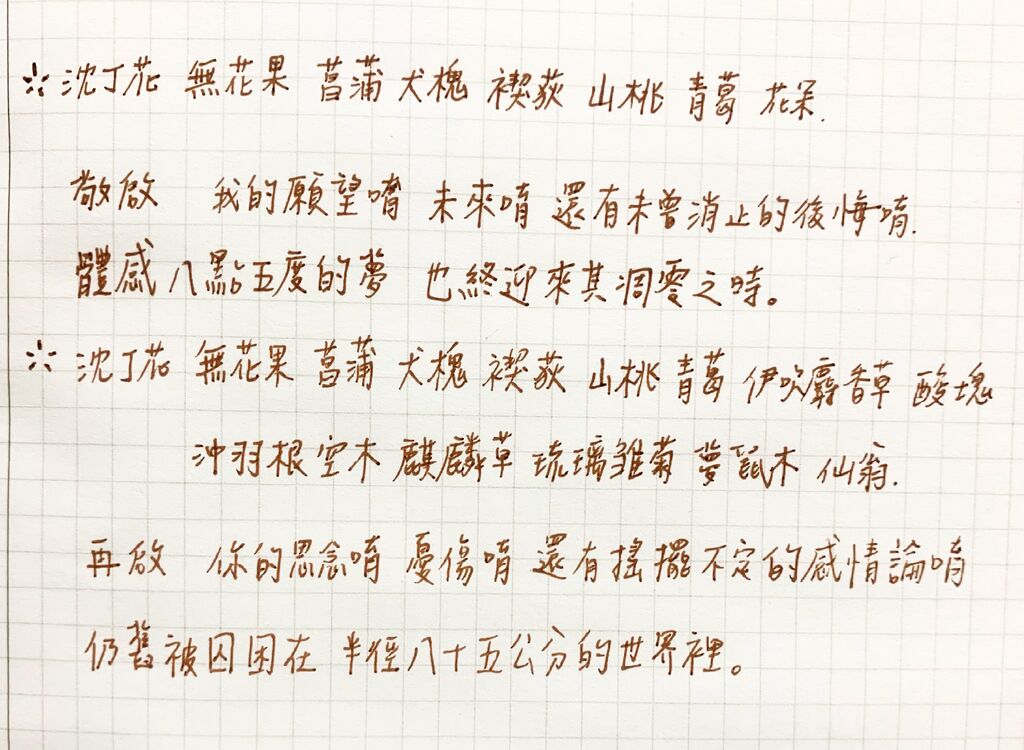 沈丁花 無花果 菖蒲 犬槐 禊荻 山桃 青葛 花呆.
敬啟 我的願望唷 未來唷 還有未曾消止的後悔唷.
體感八點五度的夢 也終迎來其凋零之時。
沈丁花 無花果 菖蒲 犬槐 禊荻 山桃 青葛 伊吹麝香草 酸塊
沖羽根空木 麒麟草 琉璃雏菊 夢鼠木 仙翁.
再啟 你的思念唷 憂傷唷 還有搖擺不定的感情論唷
仍舊被囚困在 半徑八十五公分的世界裡。